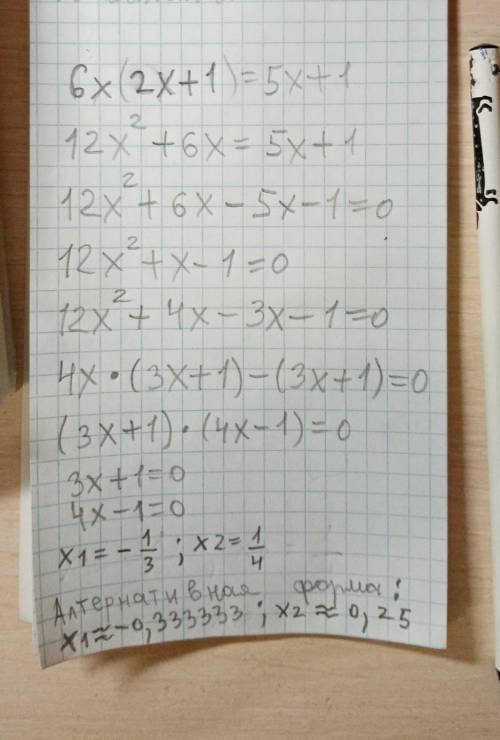 6x(2x+1)=5x+1
12x²+6x=5x+1
12x²+6x-5x-1=0
12x²+x-1=0
12x²+4x-3x-1=0
4x•(3x+1)-(3x+1)=0
(3x+1)•(4x-1)=0
3x+1=0
4x-1=0
x1=-1/3; x2=1/4
Алтернативная форма:
x1≈-0,333333; x2≈0,25